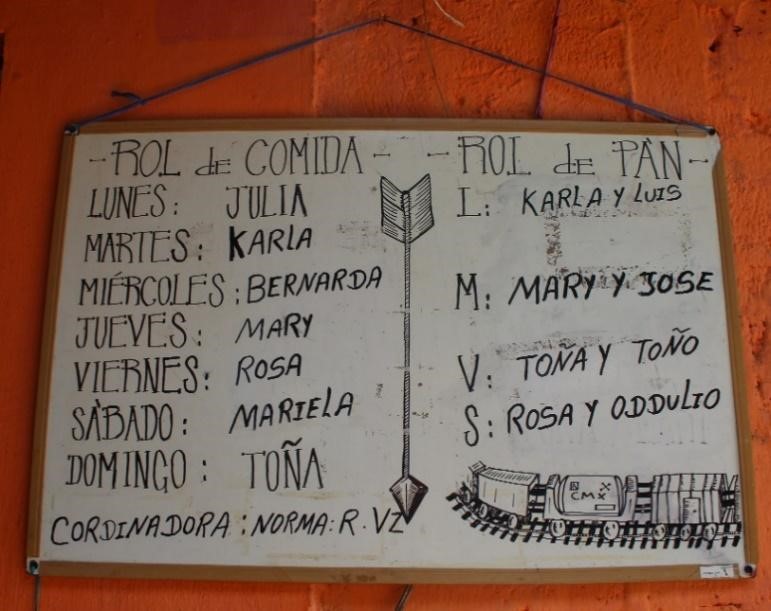 -ROL de COMIDA-
LUNES: JULIA
MARTES: KARLA
MIÉRCOLES: BERNARDA
JUEVES: MARY
VIERNES: ROSA
SÁBADO: MARIELA
DOMINGO: TOÑA
CORDINADORA: NORMA: R. VZ
-ROL de PÀN-
L: KARLA Y LUIS
M: MARY Y JOSE
V: TOÑA Y TOÑO
S: ROSA Y ODDULIO
CMX